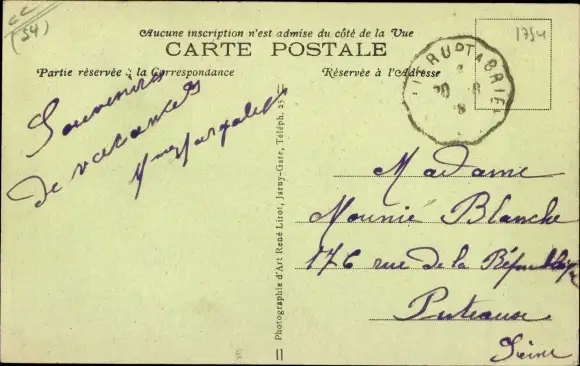 CC
(54)
Aucune inscription n'est admise du côté de la Vue
CARTE POSTALE
Partie réservée à la Correspondance
Réservée à l'Adresse
1754
RUPT ABRIE
20 8
Souvenirs
de vacances
Photographie d'Art René Lirot, Jarny-Gare, Téléph. 25
Madame
Mounié Blanche
176 rue de la République
Puteaux
Seine